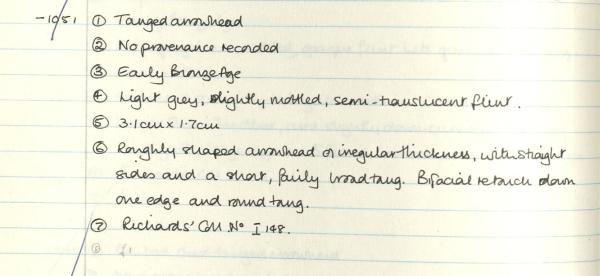 -10/51 ① Tanged arrowhead
② No provenance recorded
③ Early Bronze Age
④ Light grey, slightly mottled, semi-translucent flint.
⑤ 3.1cm x 1.7cm
⑥ Roughly shaped arrowhead of irregular thickness, with straight
sides and a short, fairly broad tang. Bifacial retouch down
one edge and round tang.
⑦ Richards' Coll. No I 148.